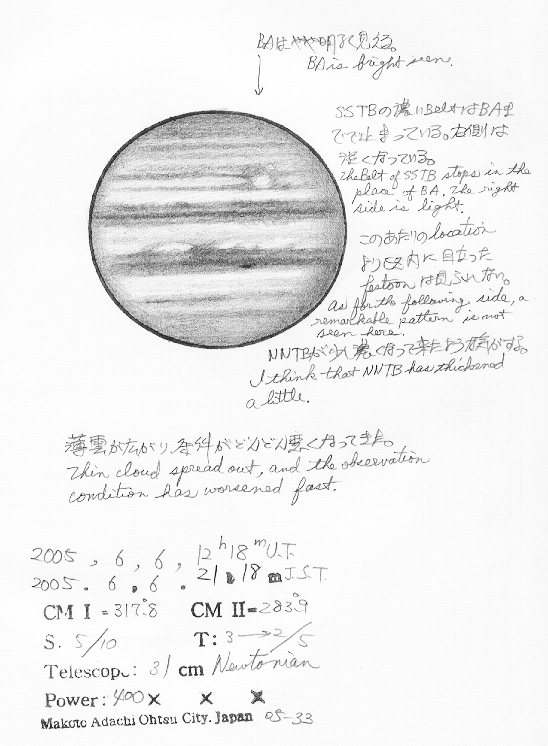 BAはやや明るく見える。
BA is bright seen.
SSTBの濃いBeltはBAま
でで止まっている。右側は
淡くなっている。
the Belt of SSTB stops in the
place of BA. The right
side is light.
このあたりのlocation
より以内に目立った
festoonは見られない。
as for the following side, a
remarkable pattern is not
seen here.
NNTBが少し濃くなって来たよう な気がする。
I think that NNTB has thickened
a little.
薄雲が広がり、条件がどんどん悪くなってきた。
Thin cloud spread out, and the observation
condition has worsened fast.
2005, 6, 6, 12h18m U.T.
2005. 6. 6. 21h18m J.S.T.
CM I = 317.°8 CM II = 283.°9
S. 5/10 T: 3→2/5
Telescope: 31 cm Newtonian
Power: 400× × ×
Makoto Adachi Ohtsu City. Japan 05-33